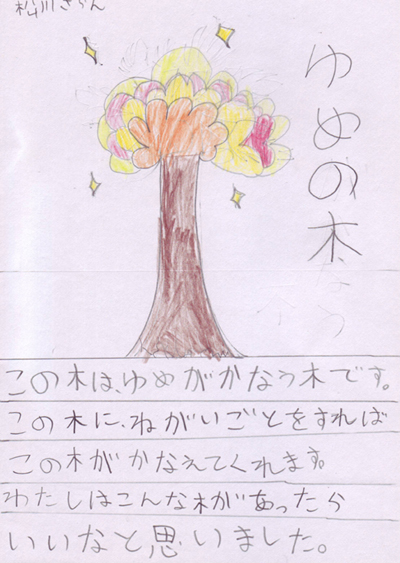 松川さらん
ゆめの木
この木は、ゆめがかなう木です。
この木に、ねがいごとをすれば
この木がかなえてくれます。
わたしはこんな木があったら
いいなと思いました。